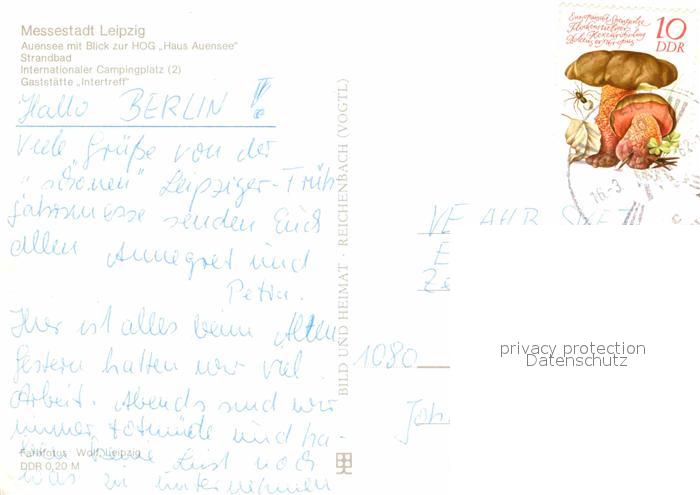 Messestadt Leipzig
Auensee mit Blick zur HOG „Haus Auensee"
Strandbad
Internationaler Campingplatz (2)
Gaststätte „Intertreff"
Hallo BERLIN !
Viele Grüße von der
"schönen" Leipziger-Früh-
jahrsmesse senden Euch
allen Annegret und
Petra.
Hier ist alles beim Alten
gestern hatten wir viel
Arbeit. Abends sind wir
immer totmüde und ha-
ben keine Lust noch
was zu unternehmen
Farbfotos: Wolf, Leipzig
DDR 0,20 M
BILD UND HEIMAT · REICHENBACH (VOGTL)
10
DDR
16.-3.
1080
privacy protection
Datenschutz